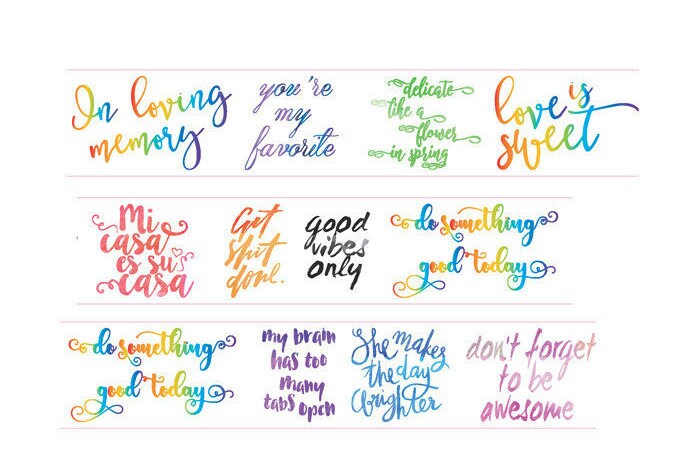 In loving
memory
you're
my
favorite
delicate
like a
flower
in spring
love is
sweet
Mi
casa
es su
casa
Get
shit
done.
good
vibes
only
do something
good today
do something
good today
my brain
has too
many
tabs open
She makes
the day
brighter
don't forget
to be
awesome